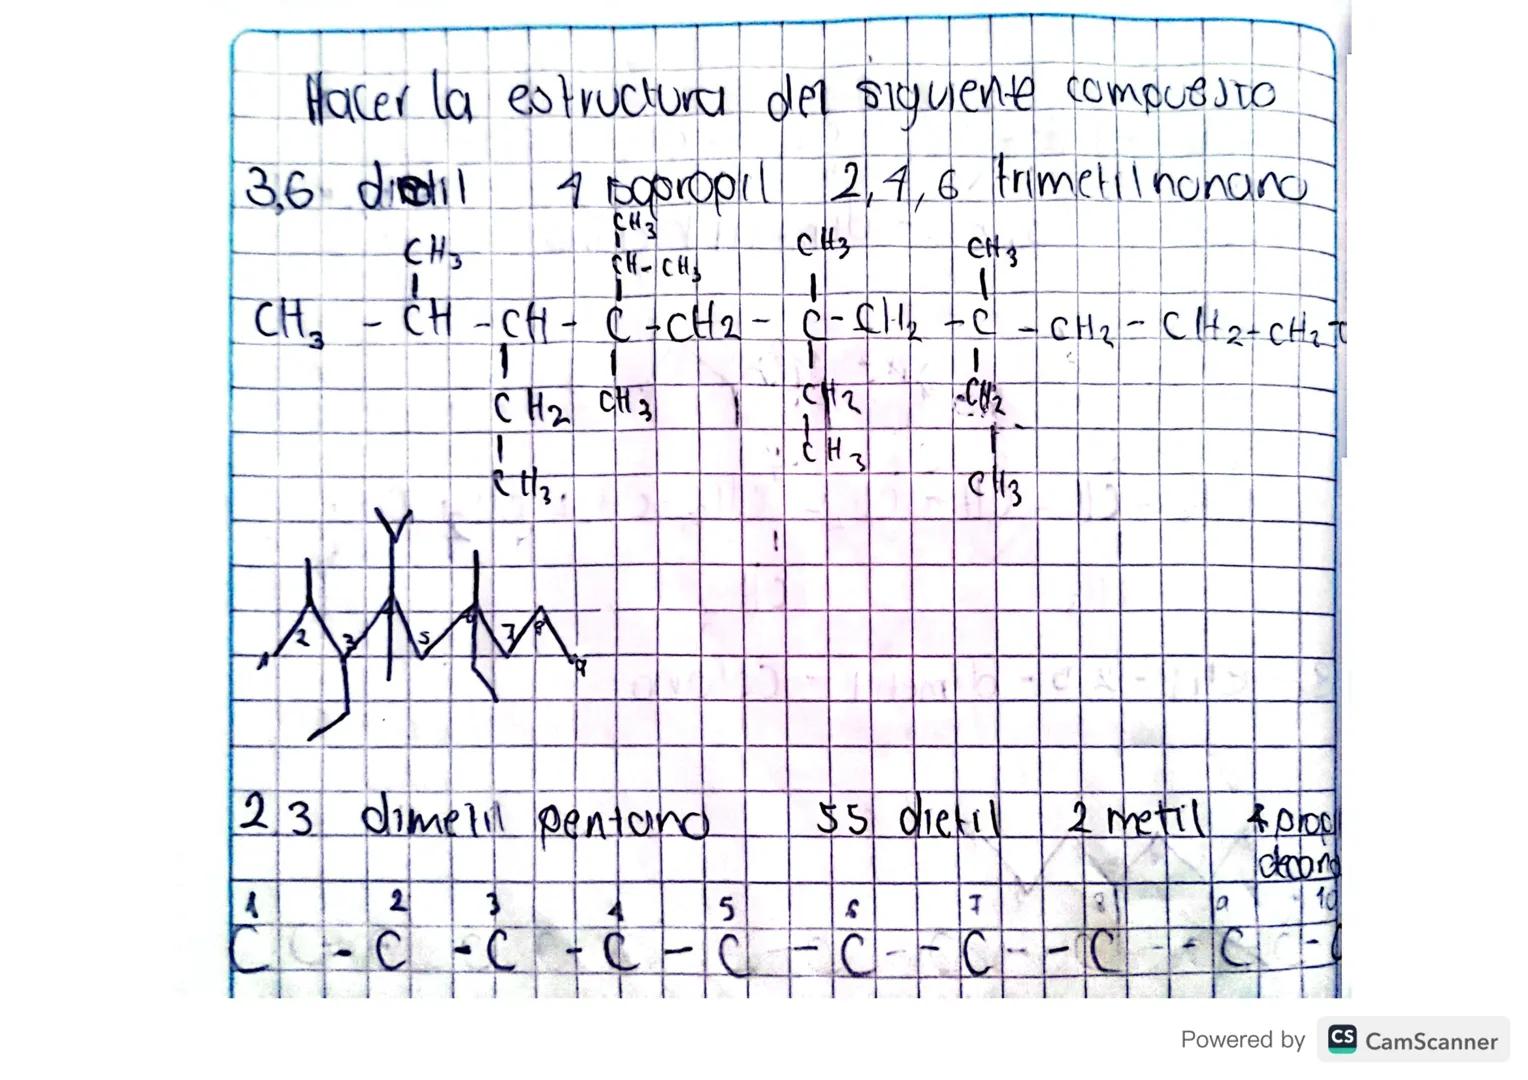 Hacer la estructura del siguiente compuesto
3,6 dietil 4 isopropil 2,4,6 trimetil nonano
CH3
CH3 CH-CH3 CH3 CH3
CH3 - CH - CH - C - CH2 - C - CH2 - C - CH2 - CH2 - CH2 -
CH2 CH3 CH2 CH2
CH3 CH3 CH3
1 2 3 4 5 6 7 8 9
2 3 dimetil pentano 55 dietil 2 metil 4 prop
decano
1 2 3 4 5 6 7 8 9 10
C - C - C - C - C - C - C - C - C - C
Powered by CS CamScanner